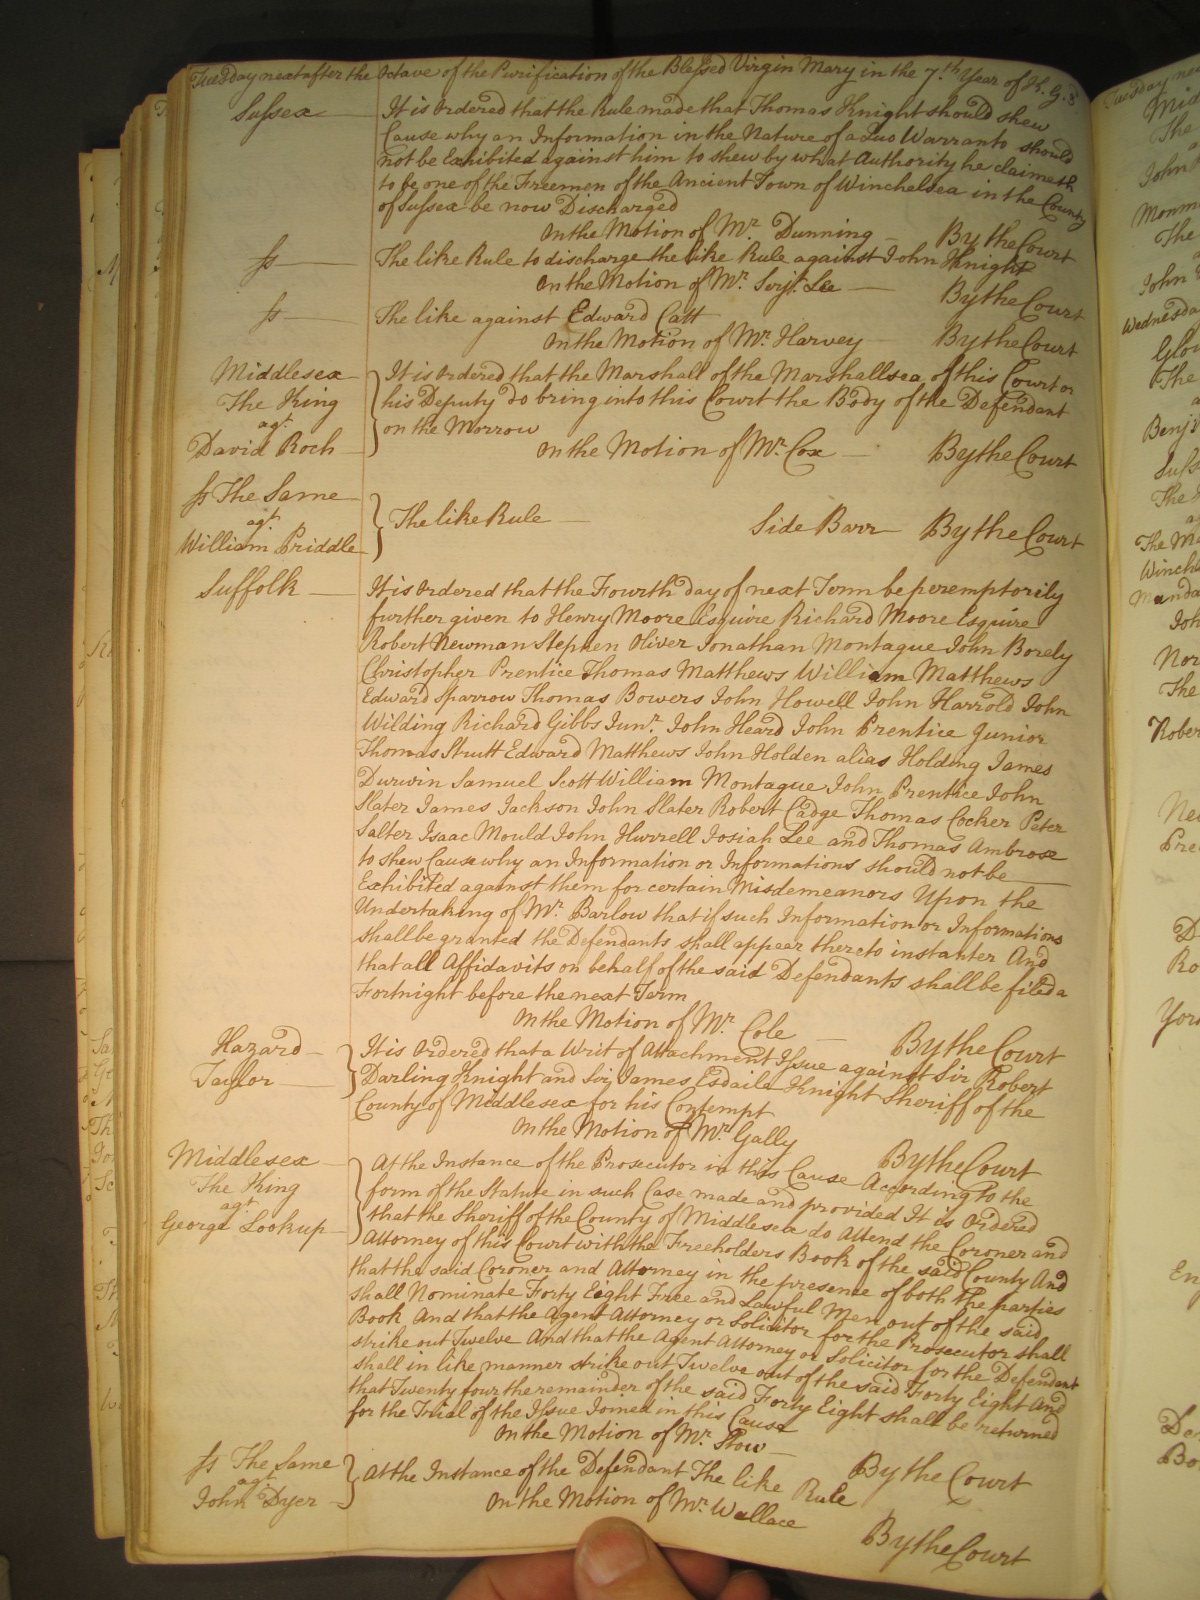 Tuesday next after the Octave of the Purification of the Blessed Virgin Mary in the 7.th Year of K. G. 3
Sussex
It is Ordered that the Rule made that Thomas Knight should shew
Cause why an Information in the Nature of a Quo Warranto should
not be Exhibited against him to shew by what Authority he claimeth
to be one of the Freemen of the Ancient Town of Winchelsea in the County
of Sussex be now Discharged
On the Motion of Mr. Dunning By the Court
Ss The like Rule to discharge the like Rule against John Knight
On the Motion of Mr. Serjt. Lee By the Court
Ss The like against Edward Catt
On the Motion of Mr. Harvey By the Court
Middlesex
The King
agt.
David Roch
It is Ordered that the Marshall of the Marshallsea of this Court or
his Deputy do bring into this Court the Body of the Defendant
on the Morrow
On the Motion of Mr. Cox By the Court
Ss The Same
agt.
William Priddle
The like Rule Side Barr By the Court
Suffolk
It is Ordered that the Fourth day of next Term be peremptorily
further given to Henry Moore Esquire Richard Moore Esquire
Robert Newman Stephen Oliver Jonathan Montague John Borely
Christopher Prentice Thomas Matthews William Matthews
Edward Sparrow Thomas Bowers John Howell John Harrold John
Wilding Richard Gibbs Junr. John Heard John Prentice Junior
Thomas Strutt Edward Matthews John Holden alias Holding James
Durwin Samuel Scott William Montague John Prentice John
Slater James Jackson John Slater Robert Cadge Thomas Cocker Peter
Salter Isaac Mould John Hurrell Josiah Lee and Thomas Ambrose
to shew Cause why an Information or Informations should not be
Exhibited against them for certain Misdemeanors Upon the
Undertaking of Mr. Barlow that if such Information or Informations
shall be granted the Defendants shall appear thereto instanter And
that all Affidavits on behalf of the said Defendants shall be filed a
Fortnight before the next Term
On the Motion of Mr. Cole By the Court
Hazard
Taylor
It is Ordered that a Writ of Attachment Issue against Sir Robert
Darling Knight and Sir James Esdaile Knight Sheriff of the
County of Middlesex for his Contempt
On the Motion of Mr. Gally
By the Court
Middlesex
The King
agt.
George Lookup
At the Instance of the Prosecutor in this Cause According to the
form of the Statute in such Case made and provided It is Ordered
that the Sheriff of the County of Middlesex do Attend the Coroner and
Attorney of this Court with the Freeholders Book of the said County And
that the said Coroner and Attorney in the presence of both the parties
shall Nominate Forty Eight Free and Lawful Men out of the said
Book And that the Agent Attorney or Solicitor for the Prosecutor shall
strike out Twelve And that the Agent Attorney or Solicitor for the Defendant
shall in like manner strike out Twelve out of the said Forty Eight And
that Twenty four the remainder of the said Forty Eight shall be returned
for the Trial of the Issue Joined in this Cause
On the Motion of Mr. Stow
By the Court
Ss The Same
agt.
John Dyer
At the Instance of the Defendant The like Rule
On the Motion of Mr. Wallace
By the Court